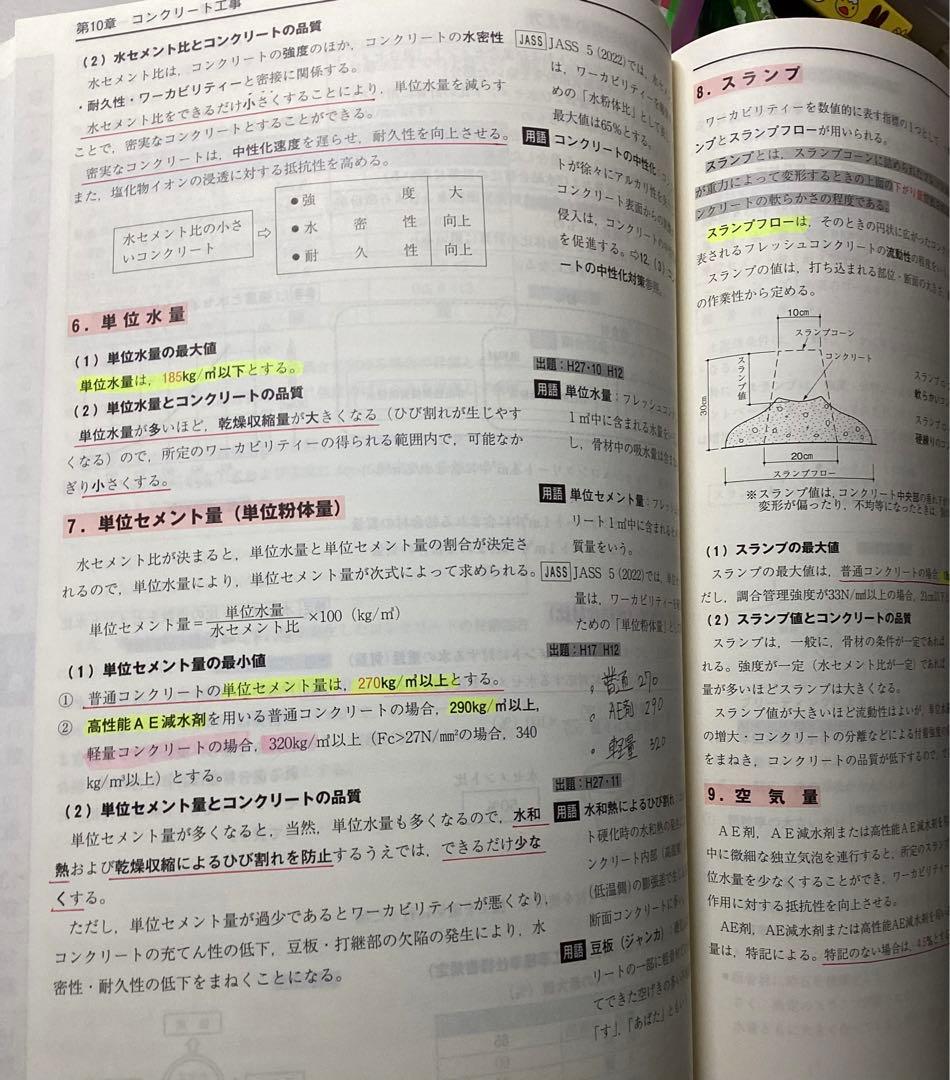 第10章 コンクリート工事
(2) 水セメント比とコンクリートの品質
水セメント比は，コンクリートの強度のほか，コンクリートの水密性
・耐久性・ワーカビリティーと密接に関係する。
水セメント比をできるだけ小さくすることにより，単位水量を減らす
ことで，密実なコンクリートとすることができる。
密実なコンクリートは，中性化速度を遅らせ，耐久性を向上させる。
また，塩化物イオンの浸透に対する抵抗性を高める。
水セメント比の小さ
いコンクリート
⇨
●強度 大
●水密性 向上
●耐久性 向上
6．単位水量
(1) 単位水量の最大値
単位水量は，185kg/㎥以下とする。
(2) 単位水量とコンクリートの品質
単位水量が多いほど，乾燥収縮量が大きくなる（ひび割れが生じやす
くなる）ので，所定のワーカビリティーの得られる範囲内で，可能なか
ぎり小さくする。
7．単位セメント量（単位粉体量）
水セメント比が決まると，単位水量と単位セメント量の割合が決定さ
れるので，単位水量により，単位セメント量が次式によって求められる。
単位セメント量＝単位水量/水セメント比×100（kg/㎥）
(1) 単位セメント量の最小値
① 普通コンクリートの単位セメント量は，270kg/㎥以上とする。
② 高性能ＡＥ減水剤を用いる普通コンクリートの場合，290kg/㎥以上，
軽量コンクリートの場合，320kg/㎥以上（Fc>27N/mm²の場合，340
kg/㎥以上）とする。
(2) 単位セメント量とコンクリートの品質
単位セメント量が多くなると，当然，単位水量も多くなるので，水和
熱および乾燥収縮によるひび割れを防止するうえでは，できるだけ少な
くする。
ただし，単位セメント量が過少であるとワーカビリティーが悪くなり，
コンクリートの充てん性の低下，豆板・打継部の欠陥の発生により，水
密性・耐久性の低下をまねくことになる。
JASS JASS 5 (2022) では，水セ
は，ワーカビリティーを
めの「水粉体比」として
最大値は65％とする。
用語 コンクリートの中性化
トが徐々にアルカリ性を
コンクリート表面からの
侵入は，コンクリートの
を促進する。⇨12.(3) コン
ートの中性化対策参照。
出題：H27・10 H12
用語 単位水量：フレッシュコン
1㎥中に含まれる水量を
し，骨材中の吸水量は含ま
用語 単位セメント量：フレッシュ
リート1㎥中に含まれるセ
質量をいう。
JASS JASS 5 (2022) では，単位
量は，ワーカビリティーを
ための「単位粉体量」とし
出題：H17 H12
普通 270
AE剤 290
軽量 320
出題：H27・11
用語 水和熱によるひび割れ
ト硬化時の水和熱の発生
ンクリート内部（高温側）
（低温側）の膨張差で
断面コンクリートに
用語 豆板（ジャンカ）
リートの一部に粗骨材
てできた空げきの多い
「す」，「あばた」ともい
8．スランプ
ワーカビリティーを数値的に表す指標の1つとして
ンプとスランプフローが用いられる。
スランプとは，スランプコーンに詰められた
が重力によって変形するときの上面の下がり
ンクリートの軟らかさの程度である。
スランプフローは，そのときの円状に広がったコン
表されるフレッシュコンクリートの流動性の程度を
スランプの値は，打ち込まれる部位・断面の大きさ
の作業性から定める。
10cm
スランプコーン
コンクリート
スランプ値
30cm
20cm
スランプフロー
スランプコ
軟らかいコ
スランプコ
硬練りのコ
※スランプ値は，コンクリート中央部の
変形が偏ったり，不均等になったときは，
(1) スランプの最大値
スランプの最大値は，普通コンクリートの場合，
だし，調合管理強度が33N/㎟以上の場合，21cm以下
(2) スランプ値とコンクリートの品質
スランプは，一般に，骨材の条件が一定であれば
れる。強度が一定（水セメント比が一定）であれば
量が多いほどスランプは大きくなる。
スランプ値が大きいほど流動性はよいが，単位水
の増大・コンクリートの分離などによる付着強度の
をまねき，コンクリートの品質が低下するので，
9．空気量
ＡＥ剤，ＡＥ減水剤または高性能ＡＥ減水剤を
中に微細な独立気泡を連行すると，所定のスランプ
位水量を少なくすることができ，ワーカビリティー
作用に対する抵抗性を向上させる。
AE剤，AE減水剤または高性能AE減水剤を
量は，特記による。特記のない場合は，4.5％とす